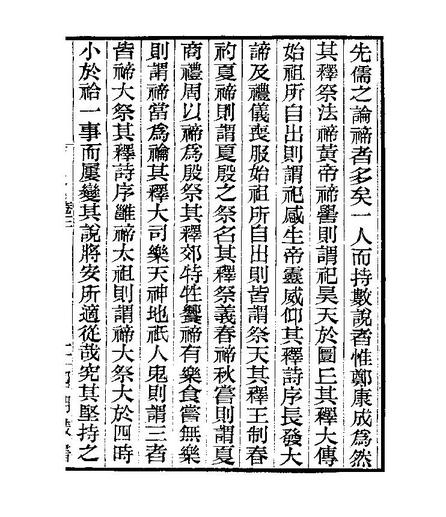 先儒之論禘者多矣一人而持數說者惟鄭康成爲然
其釋祭法禘黃帝禘嚳則謂祀昊天於圜丘其釋大傳
始祖所自出則謂祀感生帝靈威仰其釋詩序長發大
諦及禮儀喪服始祖所自出則皆謂祭天其釋王制春
礿夏禘則謂夏殷之祭名其釋祭義春禘秋嘗則謂夏
商禮周以禘爲殷祭其釋郊特牲饗禘有樂食嘗無樂
則謂禘當爲禴其釋大司樂天神地祇人鬼則謂三者
皆禘大祭其釋詩序雝禘太祖則謂禘大祭大於四時
小於祫一事而屢變其說將安所適從哉究其堅持之